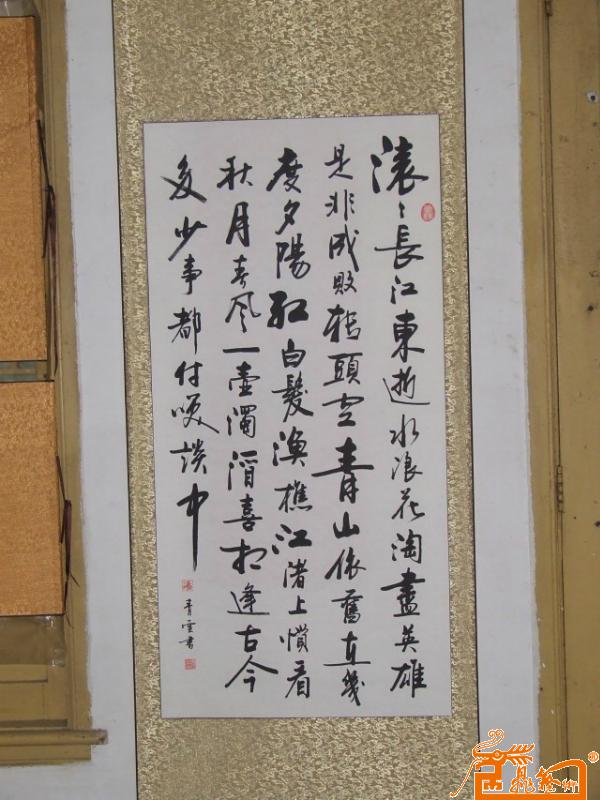 滚〻長江東逝水浪花淘盡英雄
是非成敗轉頭空青山依舊在幾
度夕陽紅白髮漁樵江渚上慣看
秋月春风一壺濁酒喜相逢古今
多少事都付咲談中
青雲書